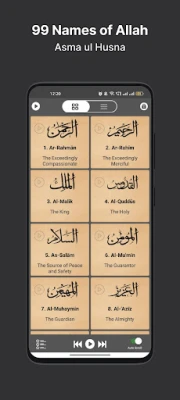 99 Names of Allah
Asma ul Husna
17:39
الرحمن
الرحيم
1. Ar-Rahmān
2. Ar-Rahīm
The Exceedingly
Compassionate
The Exceedingly
Merciful
الملك
القدوس
3. Al-Malik
4. Al-Quddūs
The King
The Holy
السلام
المؤمن
5. As-Salām
6. Al-Mu'min
The Source of Peace
and Safety
The Guarantor
المهيمن
العزيز
7. Al-Muhaymin
8. Al-'Azīz
The Guardian
The Almighty